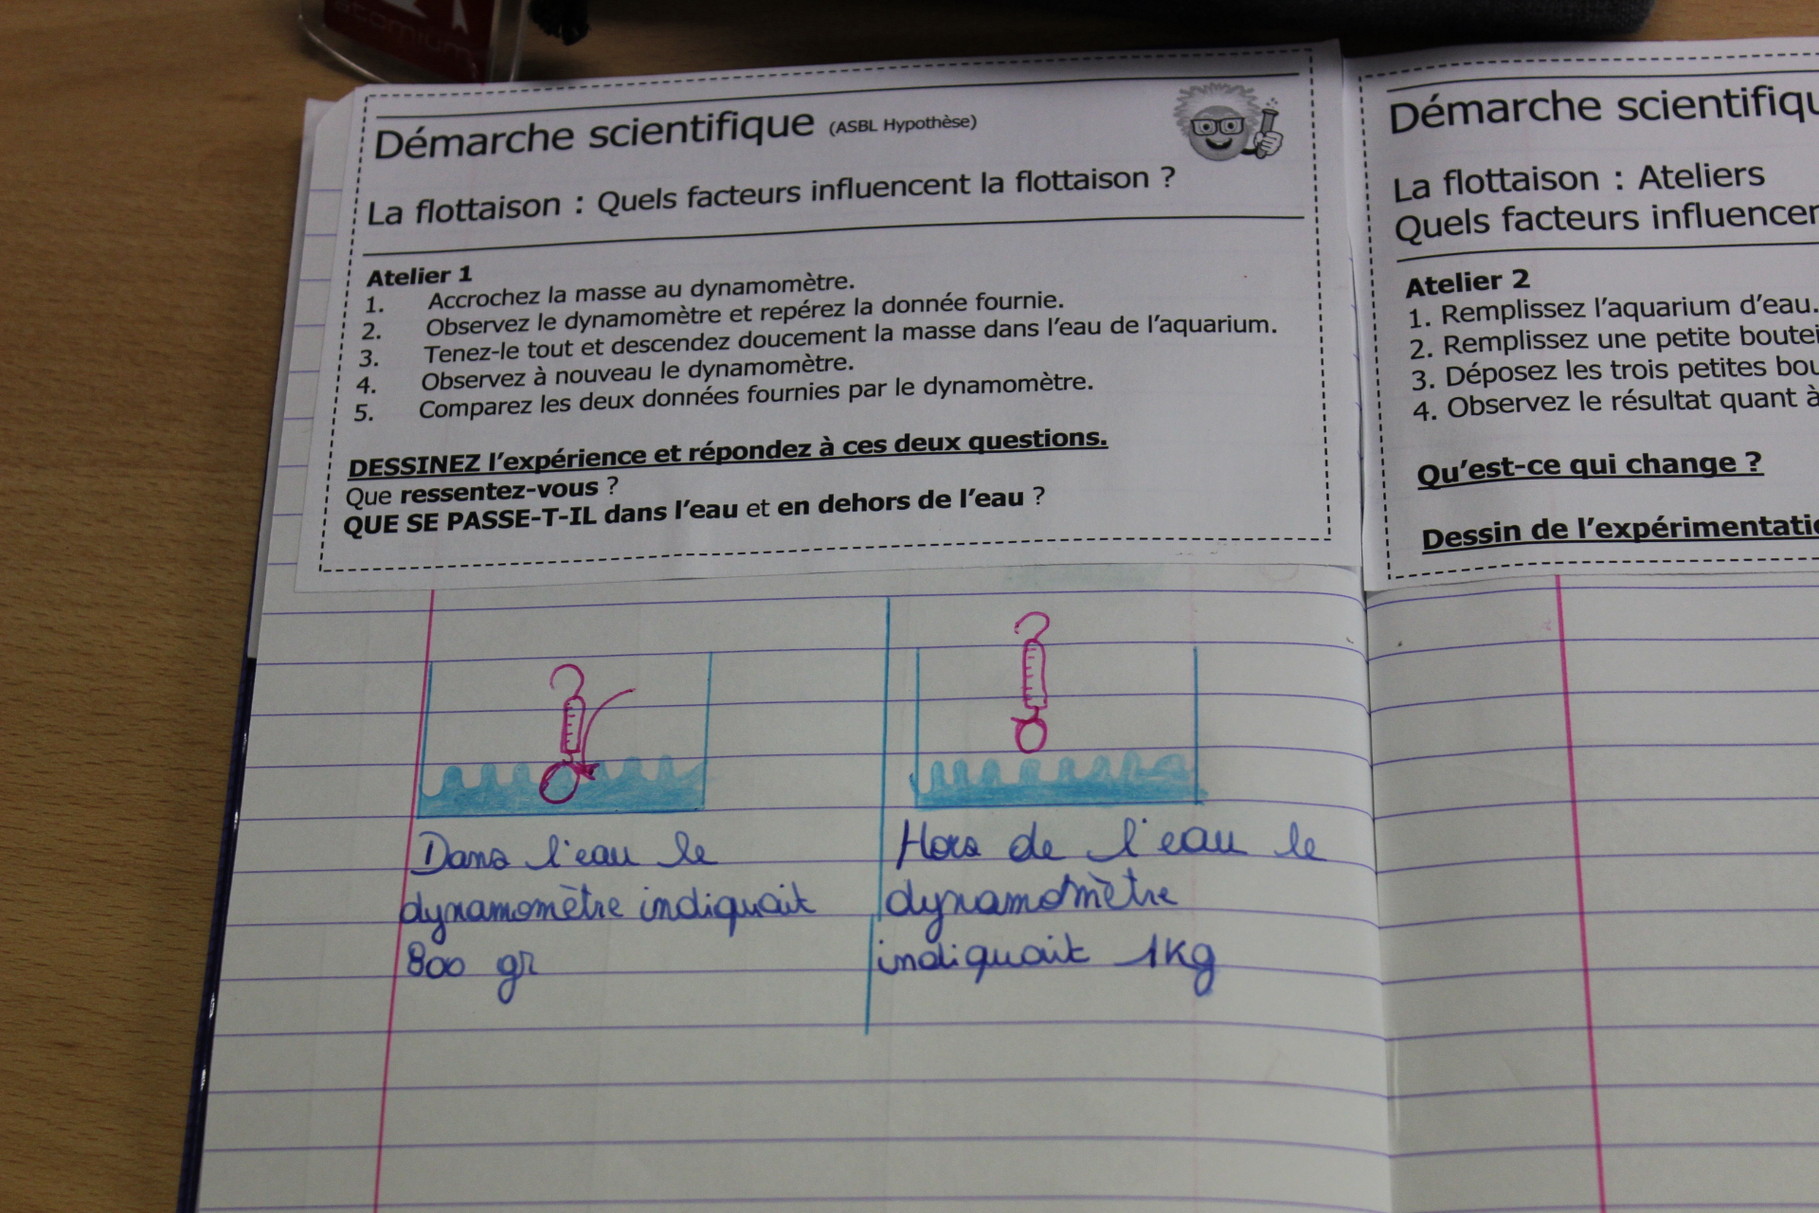 atomium
Démarche scientifique (ASBL Hypothèse)
La flottaison : Quels facteurs influencent la flottaison ?
Atelier 1
1. Accrochez la masse au dynamomètre.
2. Observez le dynamomètre et repérez la donnée fournie.
3. Tenez-le tout et descendez doucement la masse dans l'eau de l'aquarium.
4. Observez à nouveau le dynamomètre.
5. Comparez les deux données fournies par le dynamomètre.
DESSINEZ l'expérience et répondez à ces deux questions.
Que ressentez-vous ?
QUE SE PASSE-T-IL dans l'eau et en dehors de l'eau ?
Dans l'eau le
dynamomètre indiquait
800 gr
Hors de l'eau le
dynamomètre
indiquait 1Kg
Démarche scientifiqu
La flottaison : Ateliers
Quels facteurs influencer
Atelier 2
1. Remplissez l'aquarium d'eau.
2. Remplissez une petite boutei
3. Déposez les trois petites bou
4. Observez le résultat quant à
Qu'est-ce qui change ?
Dessin de l'expérimentatio